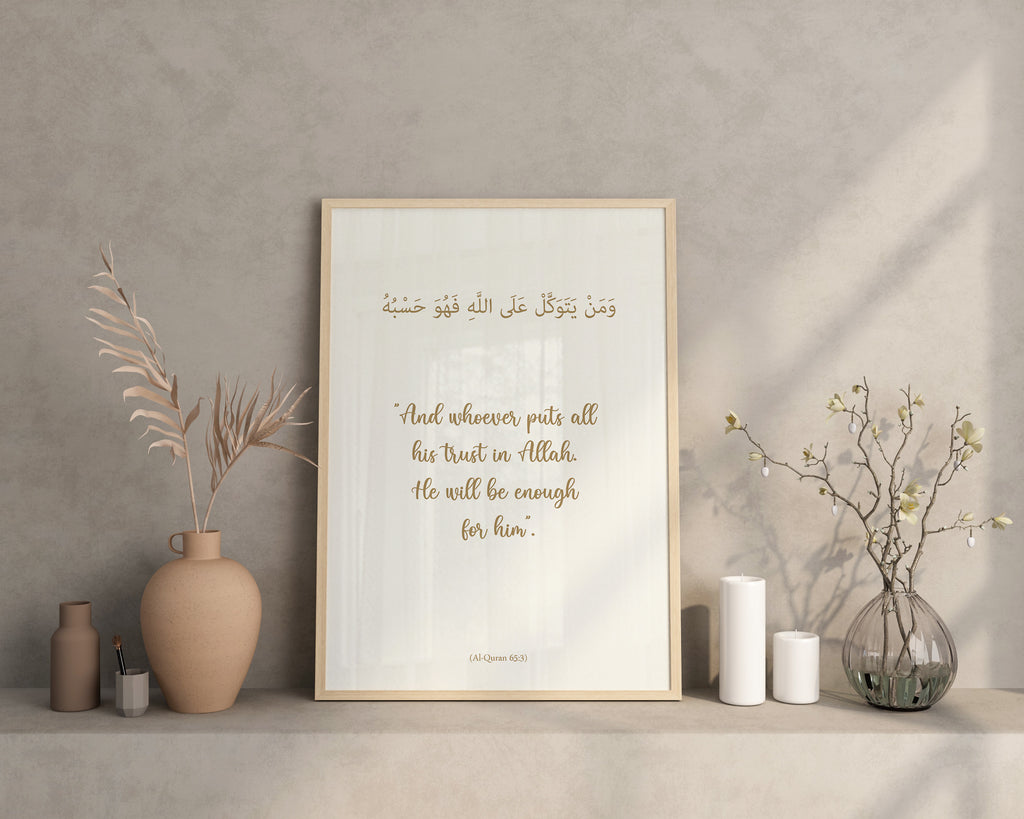 وَمَنْ يَتَوَكَّلْ عَلَى اللَّهِ فَهُوَ حَسْبُهُ
"And whoever puts all
his trust in Allah.
He will be enough
for him".
(Al-Quran 65:3)